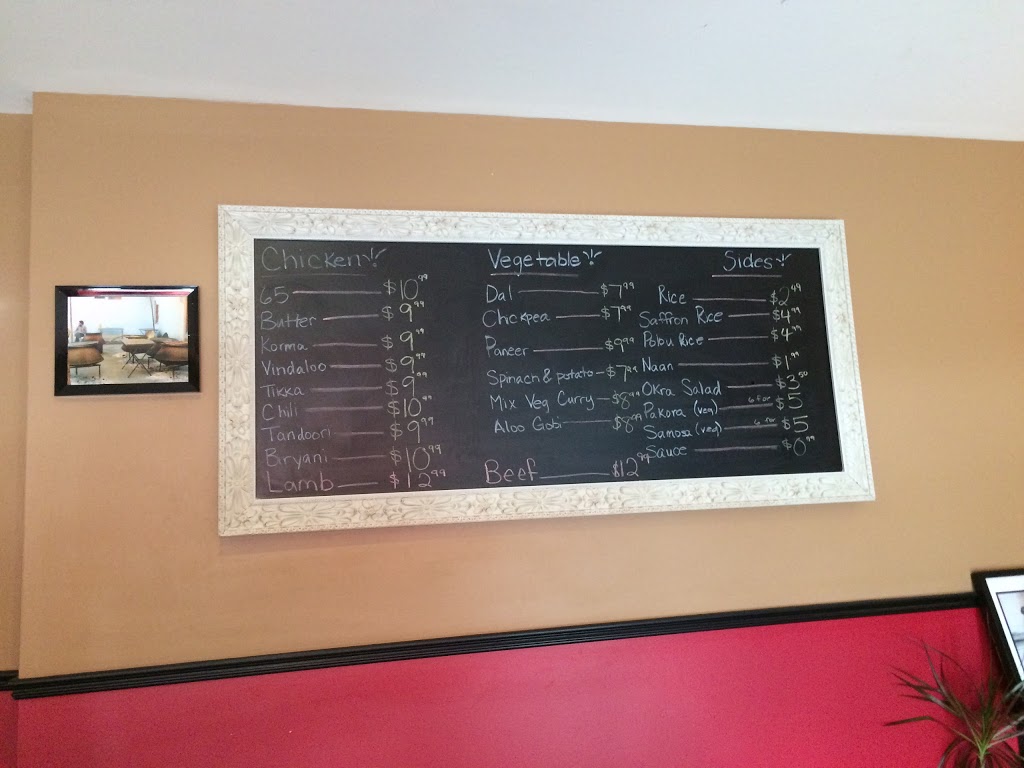 Chicken
65 $10.99
Butter $9.99
Korma $9.99
Vindaloo $9.99
Tikka $9.99
Chili $10.99
Tandoori $9.99
Bryani $10.99
Lamb $12.99
Vegetable
Dal $7.99
Chickpea $7.99
Paneer $9.99
Spinach & potato $7.99
Mix Veg Curry $8.99
Aloo Gobi $8.99
Beef $12.99
Sides
Rice $2.49
Saffron Rice $4.99
Polou Rice $4.99
Naan $1.99
Okra Salad $3.50
Pakora (veg) 6 for $5
Samosa (veg) 6 for $5
Sauce $0.99